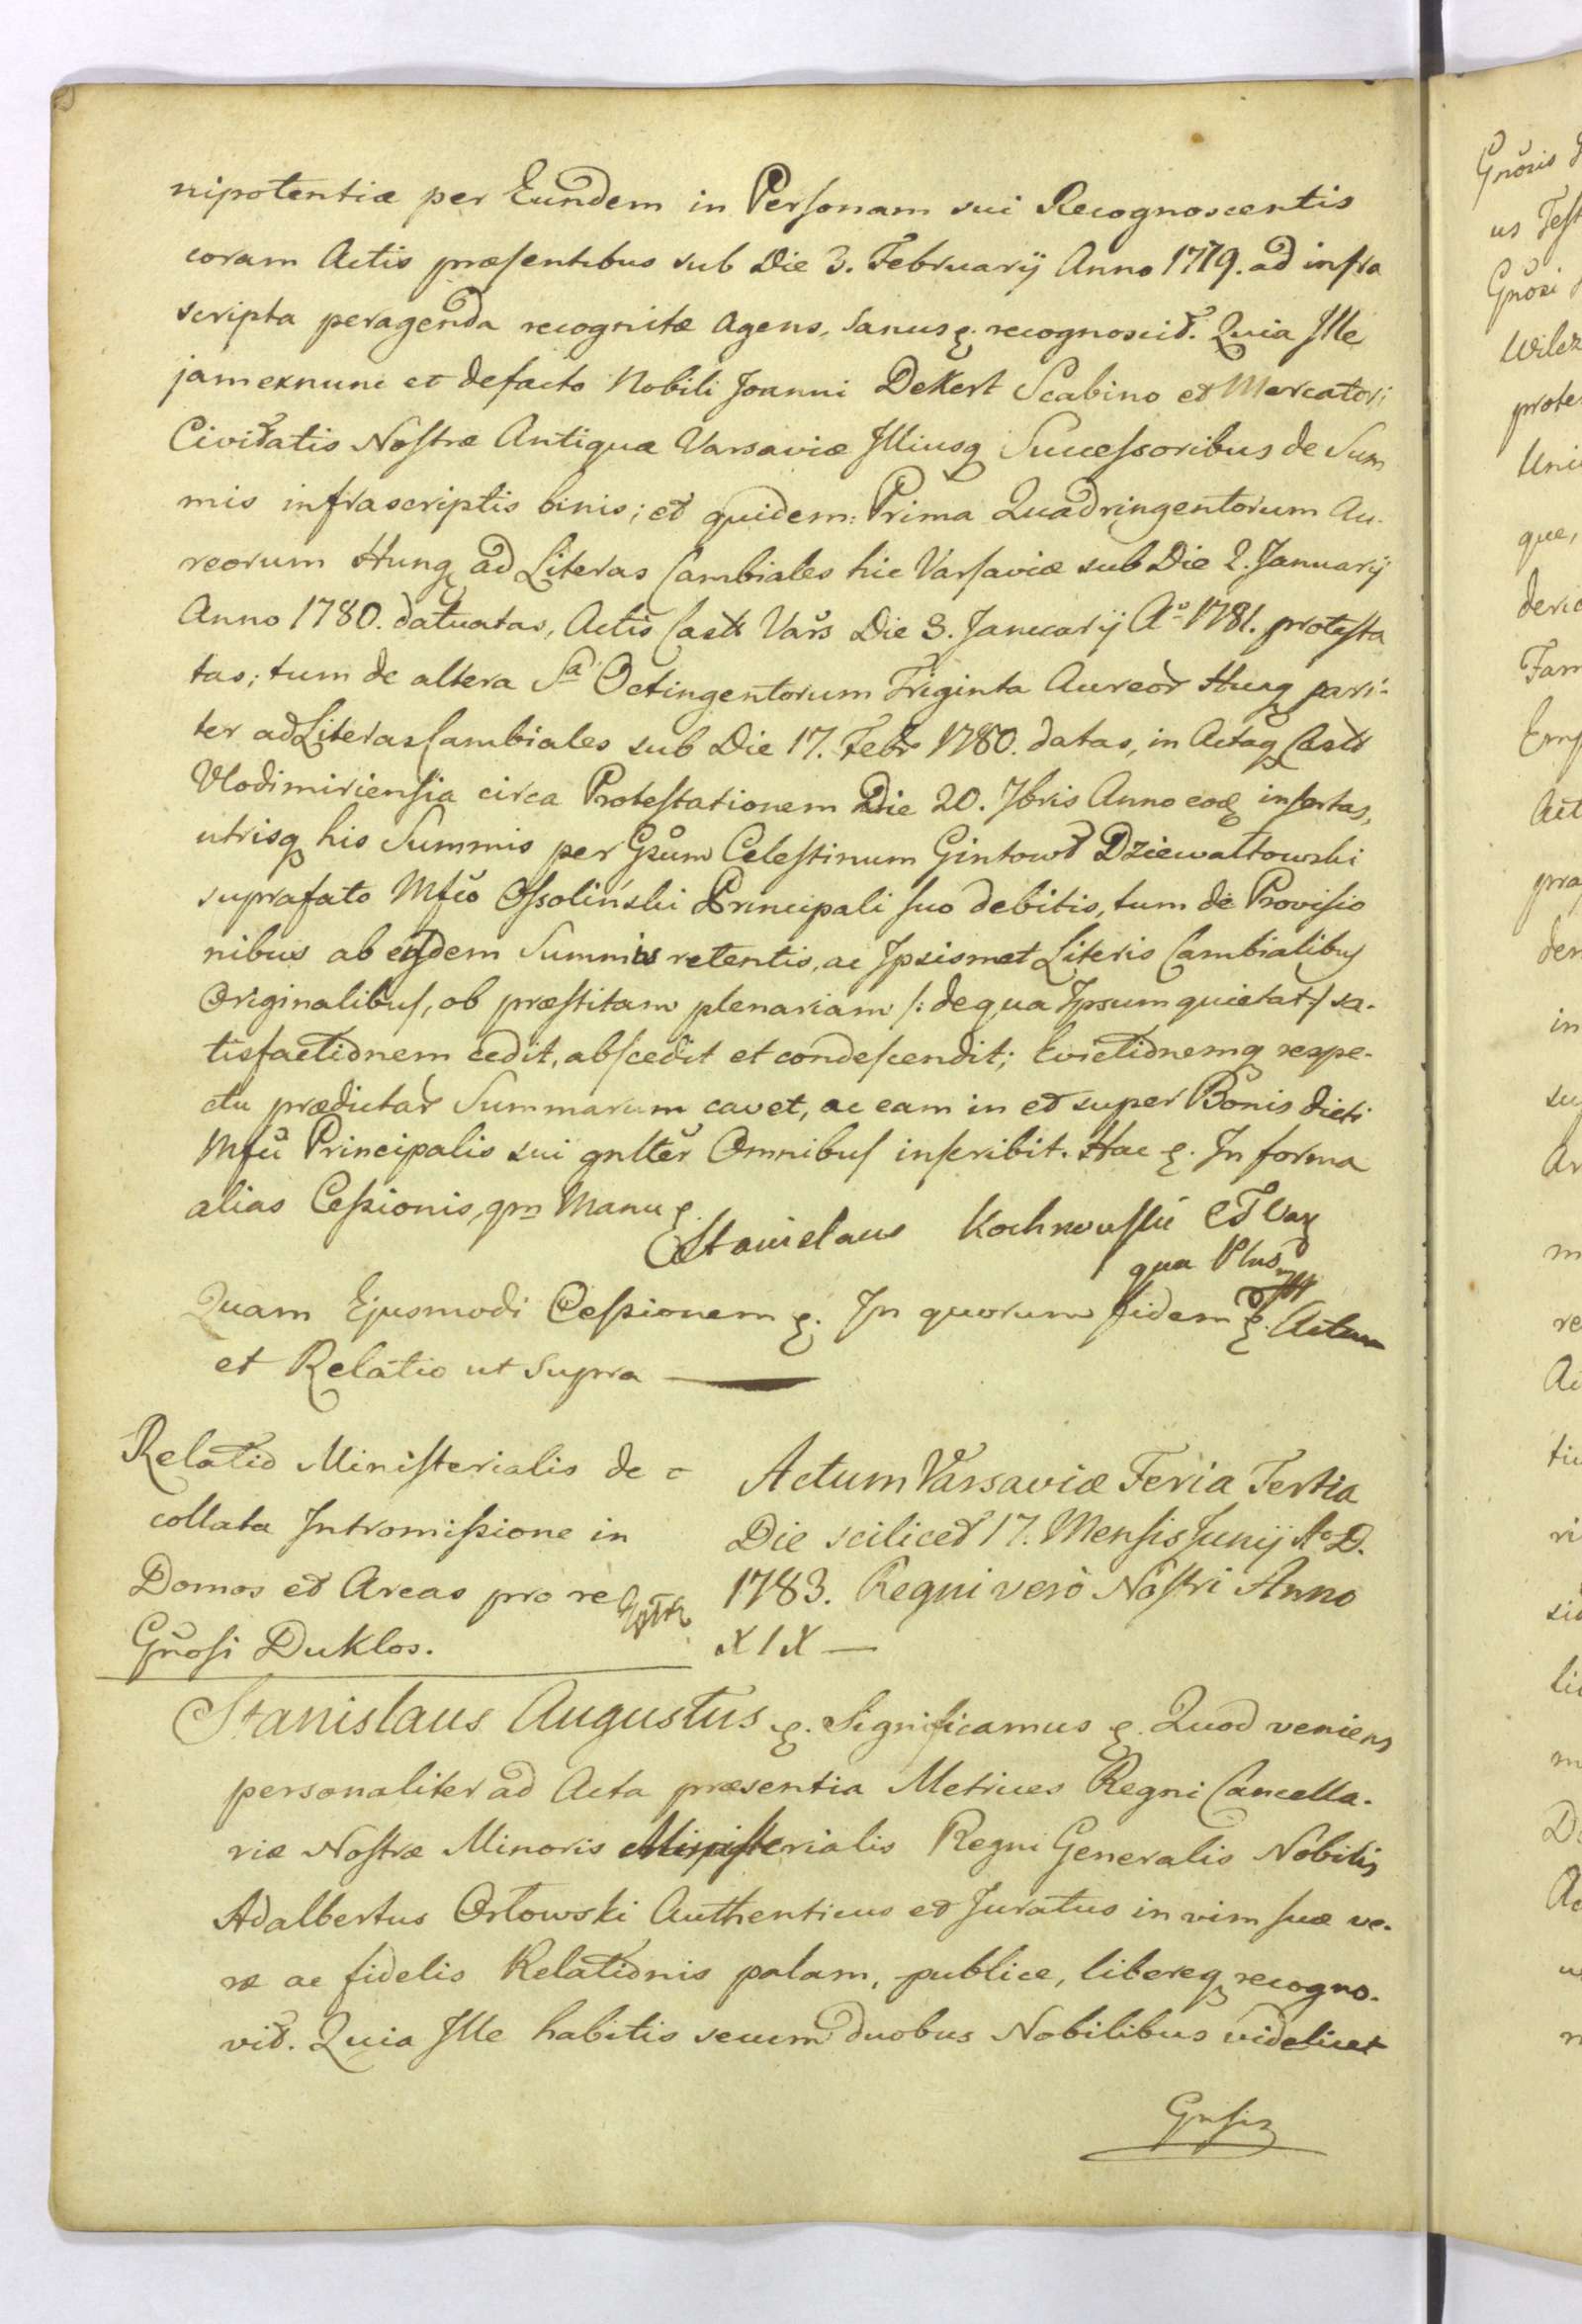 nipotentiæ per Eundem in Personam sui Recognoscentis
coram Actis præsentibus sub Die 3. Februarij Anno 1779. ad infra
scripta peragenda recognitæ Agens, Sanus ę. recognoscit. Quia Ille
jamexnunc et defacto Nobili Joanni Dekert Scabino et Mercatori
Civitatis Nostræ Antiquæ Varsaviæ Illiusq Successoribus de Sum
mis infrascriptis binis; et quidem: Prima Quadringentorum Au-
reorum Hung ad Literas Cambiales hic Varsaviæ sub Die 2. Januarij
Anno 1780. datuatas, Actis Castr Vars Die 3. Januarij Aº 1781. protesta
tas; tum de altera Sa Octingentorum Triginta Aureor Hung pari-
ter ad Literas Cambiales sub Die 17. Febr 1780. datas, in Actaq Castr
Vlodimiriensia circa Protestationem Die 20. 7bris Anno eod insertas,
utrisq his Summis per Gsum Celestinum Gintowt Dziewałtowski
suprafato Mfco Ossoliński Principali suo debitis, tum de Provisio
nibus ab eisdem Summis retentis, ac Ipsismet Literis Cambialibus
Originalibus, ob præstitam plenariam /: de qua Ipsum quietat :/ sa-
tisfactionem cedit, abscedit et condescendit; Evictionemq respe-
ctu prædictar Summarum cavet, ac eam in et super Bonis dicti
Mfci Principalis sui gnlter Omnibus inscribit. Hac ę. In forma
alias Cessionis, qm Manu ę.
Stanislaus Kochnowski
qua Plns mpp
Quam Ejusmodi Cessionem ę. In quorum fidem ę. Actum
et Relatio ut supra —
Relatio Ministerialis de
collata Intromissione in
Domos et Areas pro re
Gnosi Duklos.
Actum Varsaviæ Feria Tertia
Die scilicet 17. Mensis Junij Aº D.
1783. Regni verò Nostri Anno
XIX —
Stanislaus Augustus ę. Significamus ę. Quod veniens
personaliter ad Acta præsentia Metrices Regni Cancella-
riæ Nostræ Minoris Ministerialis Regni Generalis Nobilis
Adalbertus Orłowski Authenticus et Juratus in vim suæ ve-
ræ ac fidelis Relationis palam, publice, libereq recogno-
vit. Quia Ille habitis secum duobus Nobilibus videlicet
Gnsis